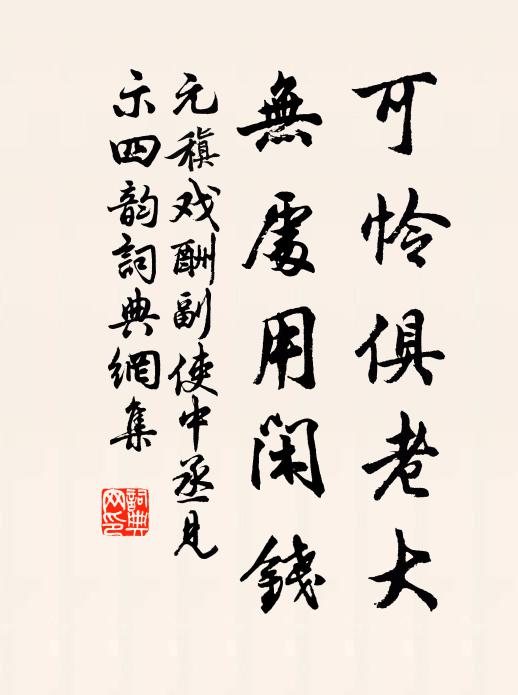 可怜俱老大
無處用閑錢
元稹戏酬副使中丞見
示四韵詞典網集
詞典
网印